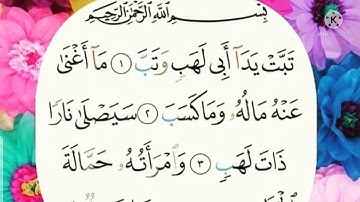 بِسْمِ ٱللَّهِ ٱلرَّحْمَٰنِ ٱلرَّحِيمِ
تَبَّتْ يَدَآ أَبِى لَهَبٍ وَتَبَّ ١ مَآ أَغْنَىٰ
عَنْهُ مَالُهُۥ وَمَا كَسَبَ ٢ سَيَصْلَىٰ نَارًا
ذَاتَ لَهَبٍ ٣ وَٱمْرَأَتُهُۥ حَمَّالَةَ